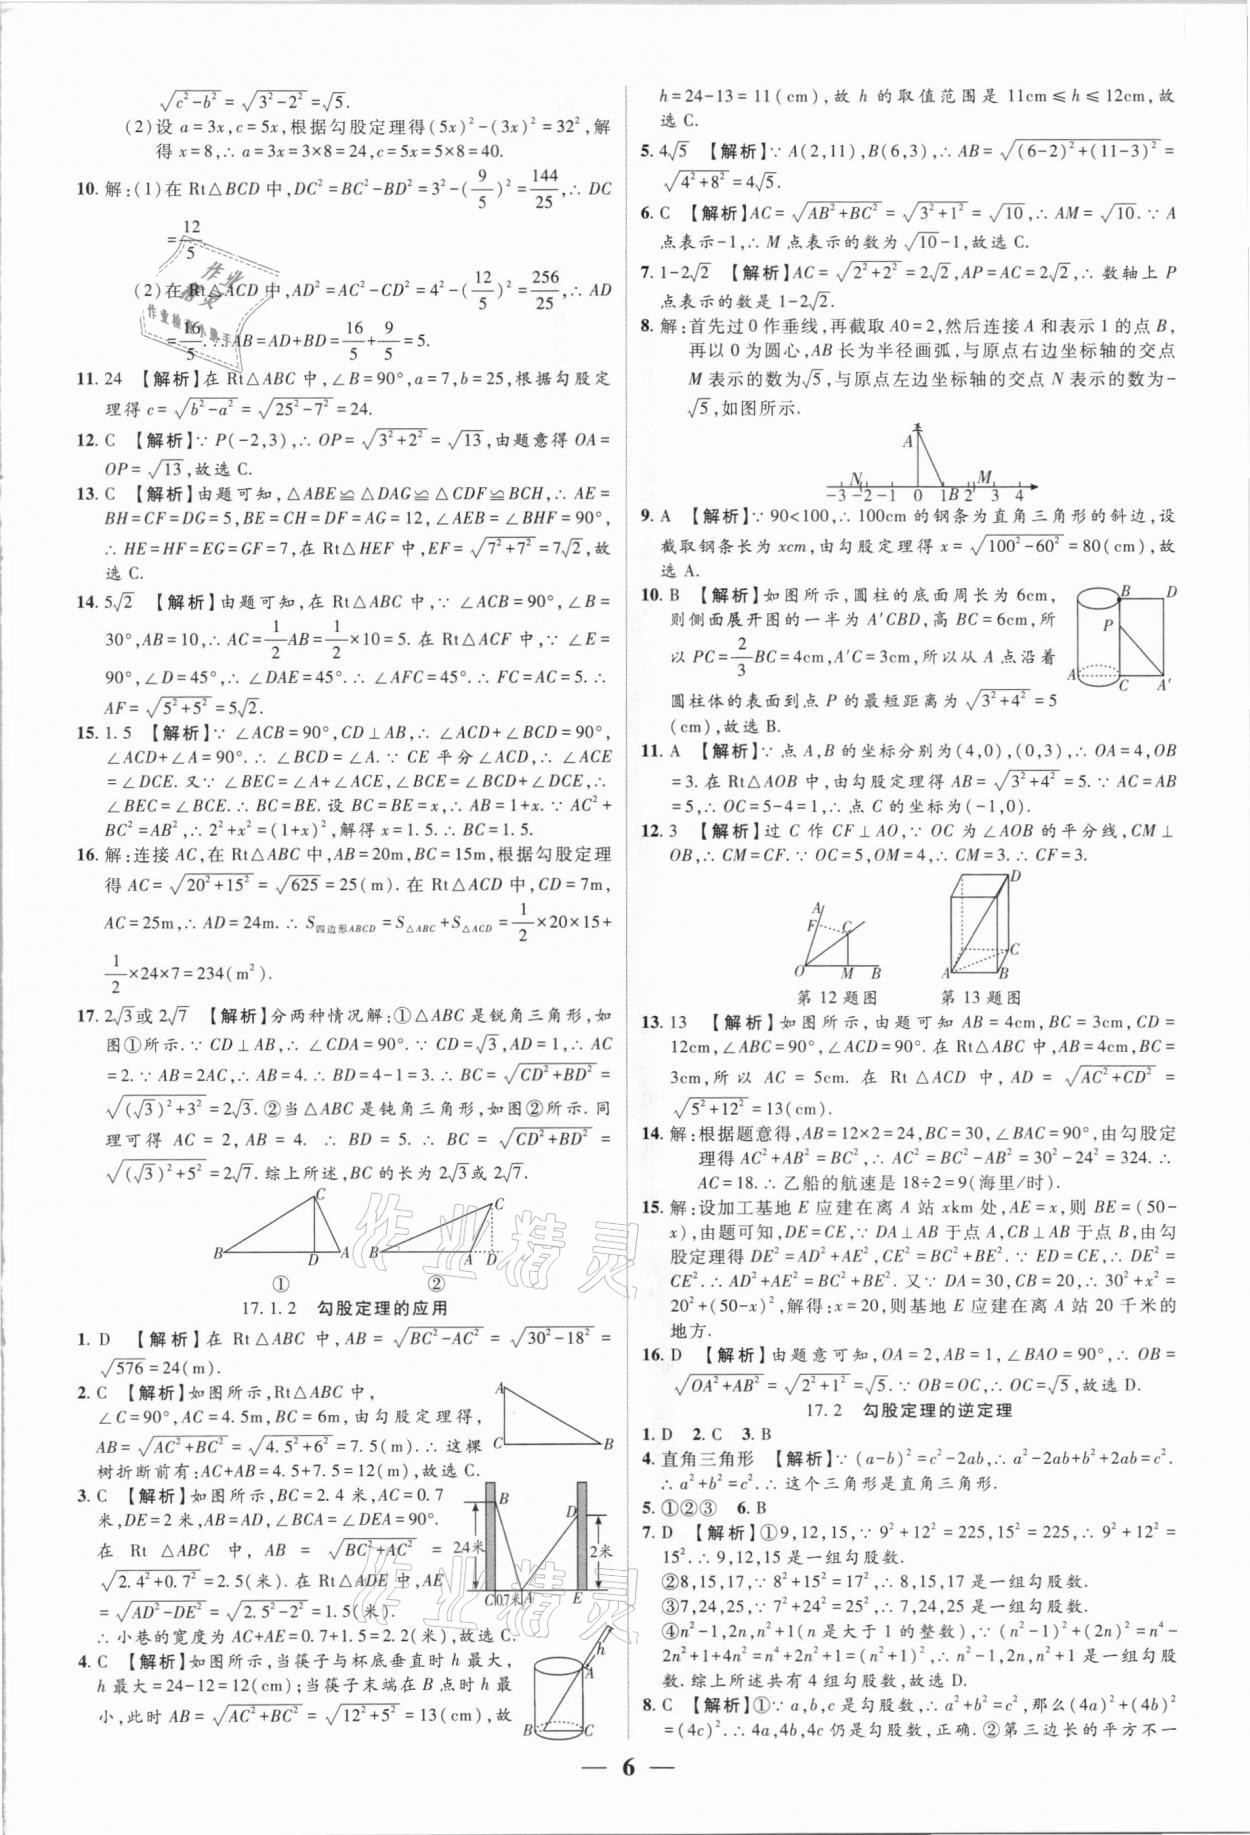 √(c²-b²)=√(3²-2²)=√5.
(2)设 a=3x,c=5x,根据勾股定理得(5x)²-(3x)²=32²,解
得 x=8,∴a=3x=3×8=24,c=5x=5×8=40.
10. 解:(1)在 Rt△BCD 中,DC²=BC²-BD²=3²-(9/5)²=144/25,∴DC
=12/5
(2)在 Rt△ACD 中,AD²=AC²-CD²=4²-(12/5)²=256/25,∴AD
=16/5.∴AB=AD+BD=16/5+9/5=5.
11. 24 【解析】在 Rt△ABC 中,∠B=90°,a=7,b=25,根据勾股定
理得 c=√(b²-a²)=√(25²-7²)=24.
12. C 【解析】∵P(-2,3),∴OP=√(3²+2²)=√13,由题意得 OA=
OP=√13,故选 C.
13. C 【解析】由题可知,△ABE≌△DAG≌△CDF≌BCH,∴AE=
BH=CF=DG=5,BE=CH=DF=AG=12,∠AEB=∠BHF=90°,
∴HE=HF=EG=GF=7,在 Rt△HEF 中,EF=√(7²+7²)=7√2,故
选 C.
14. 5√2 【解析】由题可知,在 Rt△ABC 中,∵∠ACB=90°,∠B=
30°,AB=10,∴AC=1/2AB=1/2×10=5. 在 Rt△ACF 中,∵∠E=
90°,∠D=45°,∴∠DAE=45°.∴∠AFC=45°.∴FC=AC=5.∴
AF=√(5²+5²)=5√2.
15. 1.5 【解析】∵∠ACB=90°,CD⊥AB,∴∠ACD+∠BCD=90°,
∠ACD+∠A=90°.∴∠BCD=∠A.∵CE 平分∠ACD,∴∠ACE
=∠DCE. 又∵∠BEC=∠A+∠ACE,∠BCE=∠BCD+∠DCE,∴
∠BEC=∠BCE.∴BC=BE. 设 BC=BE=x,∴AB=1+x.∵AC²+
BC²=AB²,∴2²+x²=(1+x)²,解得 x=1.5.∴BC=1.5.
16. 解:连接 AC,在 Rt△ABC 中,AB=20m,BC=15m,根据勾股定理
得 AC=√(20²+15²)=√625=25(m). 在 Rt△ACD 中,CD=7m,
AC=25m,∴AD=24m.∴S四边形ABCD=S△ABC+S△ACD=1/2×20×15+
1/2×24×7=234(m²).
17. 2√3或2√7 【解析】分两种情况解:①△ABC 是锐角三角形,如
图①所示.∵CD⊥AB,∴∠CDA=90°.∵CD=√3,AD=1,∴AC
=2.∵AB=2AC,∴AB=4.∴BD=4-1=3.∴BC=√(CD²+BD²)=
√((√3)²+3²)=2√3. ②当△ABC 是钝角三角形,如图②所示. 同
理可得 AC=2,AB=4. ∴BD=5. ∴BC=√(CD²+BD²)=
√((√3)²+5²)=2√7. 综上所述,BC 的长为 2√3或 2√7.
C B D A
C B A D
① ②
17.1.2 勾股定理的应用
1. D 【解析】在 Rt△ABC 中,AB=√(BC²-AC²)=√(30²-18²)=
√576=24(m).
2. C 【解析】如图所示,Rt△ABC 中,
∠C=90°,AC=4.5m,BC=6m,由勾股定理得,
AB=√(AC²+BC²)=√(4.5²+6²)=7.5(m).∴这棵
树折断前有:AC+AB=4.5+7.5=12(m),故选 C.
A C B
3. C 【解析】如图所示,BC=2.4 米,AC=0.7
米,DE=2 米,AB=AD,∠BCA=∠DEA=90°.
在 Rt△ABC 中,AB=√(BC²+AC²)=
√(2.4²+0.7²)=2.5(米). 在 Rt△ADE 中,AE
=√(AD²-DE²)=√(2.5²-2²)=1.5(米).
∴小巷的宽度为 AC+AE=0.7+1.5=2.2(米),故选 C.
B D 2.4米 2米 C 0.7米 A E
4. C 【解析】如图所示,当筷子与杯底垂直时 h 最大,
h 最大=24-12=12(cm);当筷子末端在 B 点时 h 最
小,此时 AB=√(AC²+BC²)=√(12²+5²)=13(cm),故
h A B C
h=24-13=11(cm),故 h 的取值范围是 11cm≤h≤12cm,故
选 C.
5. 4√5 【解析】∵A(2,11),B(6,3),∴AB=√((6-2)²+(11-3)²)=
√(4²+8²)=4√5.
6. C 【解析】AC=√(AB²+BC²)=√(3²+1²)=√10,∴AM=√10.∵A
点表示-1,∴M 点表示的数为√10-1,故选 C.
7. 1-2√2 【解析】AC=√(2²+2²)=2√2,AP=AC=2√2,∴数轴上 P
点表示的数是 1-2√2.
8. 解:首先过 0 作垂线,再截取 A0=2,然后连接 A 和表示 1 的点 B,
再以 0 为圆心,AB 长为半径画弧,与原点右边坐标轴的交点
M 表示的数为√5,与原点左边坐标轴的交点 N 表示的数为-
√5,如图所示.
A N M
-3 -2 -1 0 1B 2 3 4
9. A 【解析】∵90<100,∴100cm 的钢条为直角三角形的斜边,设
截取钢条长为 xcm,由勾股定理得 x=√(100²-60²)=80(cm),故
选 A.
10. B 【解析】如图所示,圆柱的底面周长为 6cm,
则侧面展开图的一半为 A'CBD,高 BC=6cm,所
以 PC=2/3BC=4cm,A'C=3cm,所以从 A 点沿着
圆柱体的表面到点 P 的最短距离为√(3²+4²)=5
(cm),故选 B.
B D P A C A'
11. A 【解析】∵点 A,B 的坐标分别为(4,0),(0,3),∴OA=4,OB
=3. 在 Rt△AOB 中,由勾股定理得 AB=√(3²+4²)=5.∵AC=AB
=5,∴OC=5-4=1,∴点 C 的坐标为(-1,0).
12. 3 【解析】过 C 作 CF⊥AO,∵OC 为∠AOB 的平分线,CM⊥
OB,∴CM=CF.∵OC=5,OM=4,∴CM=3.∴CF=3.
A F C O M B
D C A B
第 12 题图 第 13 题图
13. 13 【解析】如图所示,由题可知 AB=4cm,BC=3cm,CD=
12cm,∠ABC=90°,∠ACD=90°. 在 Rt△ABC 中,AB=4cm,BC=
3cm,所以 AC=5cm. 在 Rt△ACD 中,AD=√(AC²+CD²)=
√(5²+12²)=13(cm).
14. 解:根据题意得,AB=12×2=24,BC=30,∠BAC=90°,由勾股定
理得 AC²+AB²=BC²,∴AC²=BC²-AB²=30²-24²=324.∴
AC=18.∴乙船的航速是 18÷2=9(海里/时).
15. 解:设加工基地 E 应建在离 A 站 xkm 处,AE=x,则 BE=(50-
x),由题可知,DE=CE,∵DA⊥AB 于点 A,CB⊥AB 于点 B,由勾
股定理得 DE²=AD²+AE²,CE²=BC²+BE².∵ED=CE,∴DE²=
CE².∴AD²+AE²=BC²+BE². 又∵DA=30,CB=20,∴30²+x²=
20²+(50-x)²,解得:x=20,则基地 E 应建在离 A 站 20 千米的
地方.
16. D 【解析】由题意可知,OA=2,AB=1,∠BAO=90°,∴OB=
√(OA²+AB²)=√(2²+1²)=√5.∵OB=OC,∴OC=√5,故选 D.
17.2 勾股定理的逆定理
1. D 2. C 3. B
4. 直角三角形 【解析】∵(a-b)²=c²-2ab,∴a²-2ab+b²+2ab=c².
∴a²+b²=c².∴这个三角形是直角三角形.
5. ①②③ 6. B
7. D 【解析】①9,12,15,∵9²+12²=225,15²=225,∴9²+12²=
15².∴9,12,15 是一组勾股数.
②8,15,17,∵8²+15²=17²,∴8,15,17 是一组勾股数.
③7,24,25,∵7²+24²=25²,∴7,24,25 是一组勾股数.
④n²-1,2n,n²+1(n 是大于 1 的整数),∵(n²-1)²+(2n)²=n⁴-
2n²+1+4n²=n⁴+2n²+1=(n²+1)²,∴n²-1,2n,n²+1 是一组勾股
数. 综上所述共有 4 组勾股数,故选 D.
8. C 【解析】①∵a,b,c 是勾股数,∴a²+b²=c²,那么(4a)²+(4b)²
=(4c)².∴4a,4b,4c 仍是勾股数,正确. ②第三边长的平方不一
— 6 —
作业精灵
作业精灵
作业精灵